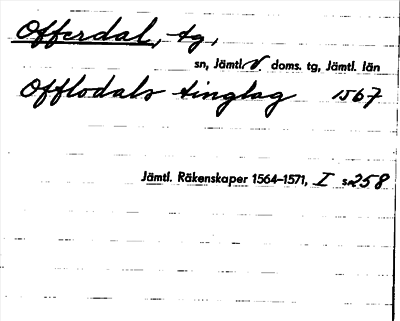 Offerdal, tg,
sn, Jämtl. V. doms. tg, Jämtl. län
Offlodals tinglag 1567
Jämtl. Räkenskaper 1564–1571, I s. 258